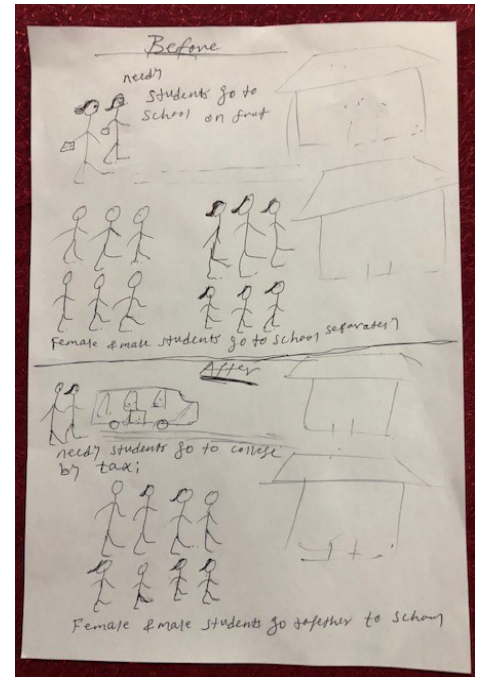 Before
needy
students go to
school on foot
Female & male students go to school separately
After
needy students go to college
by taxi
Female & male students go together to school